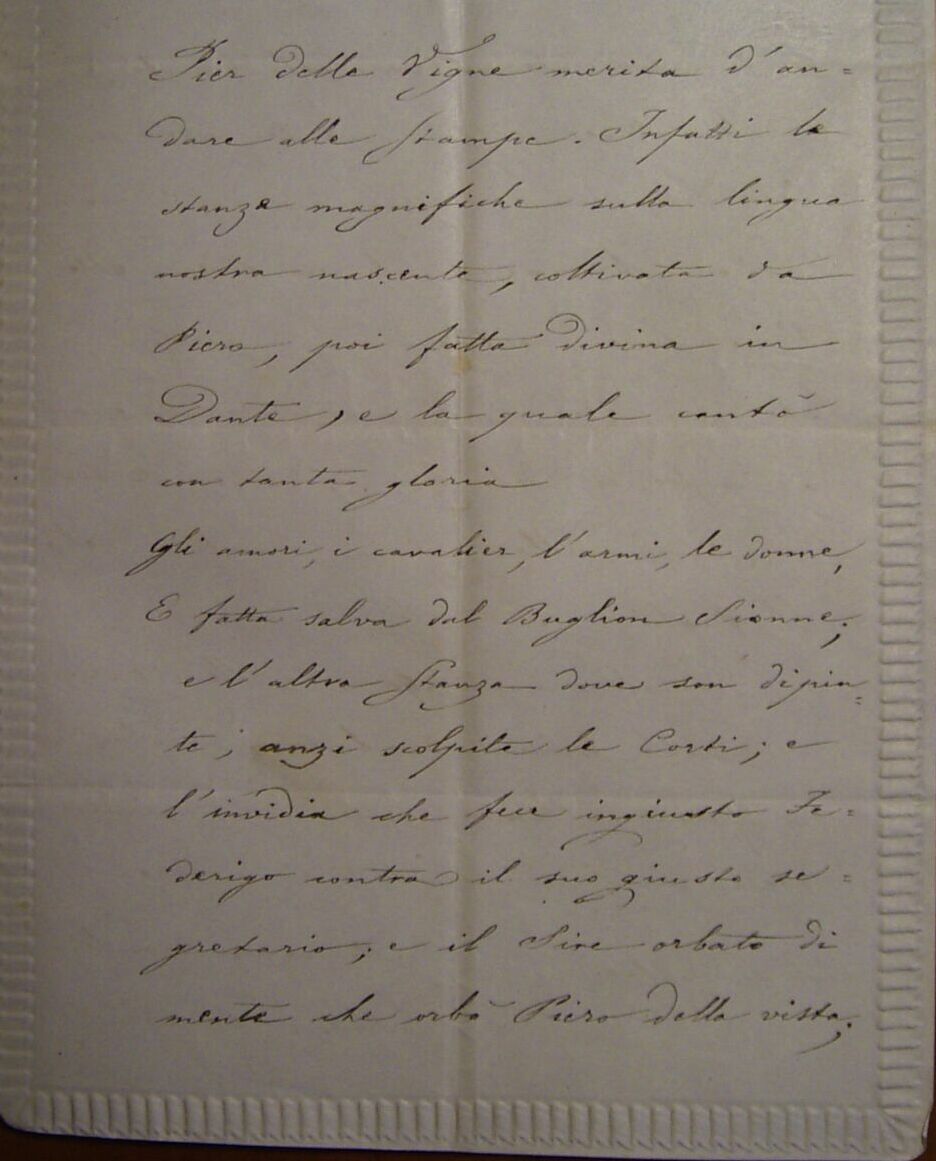 Pier delle Vigne merita d'an=
dare alle stampe. Infatti le
stanze magnifiche sulla lingua
nostra nascente, coltivata da
Piero, poi fatta divina in
Dante, e la quale cantò
con tanta gloria
Gli amori, i cavalier, l'armi, le donne,
E fatta salva dal Buglion Sionne;
e l'altra stanza dove son dipin=
te, anzi scolpite le Corti; e
l'invidia che fece ingiusto Fe=
derigo contra il suo giusto se=
gretario; e il Sire orbato di
mente che orbò Piero della vista;